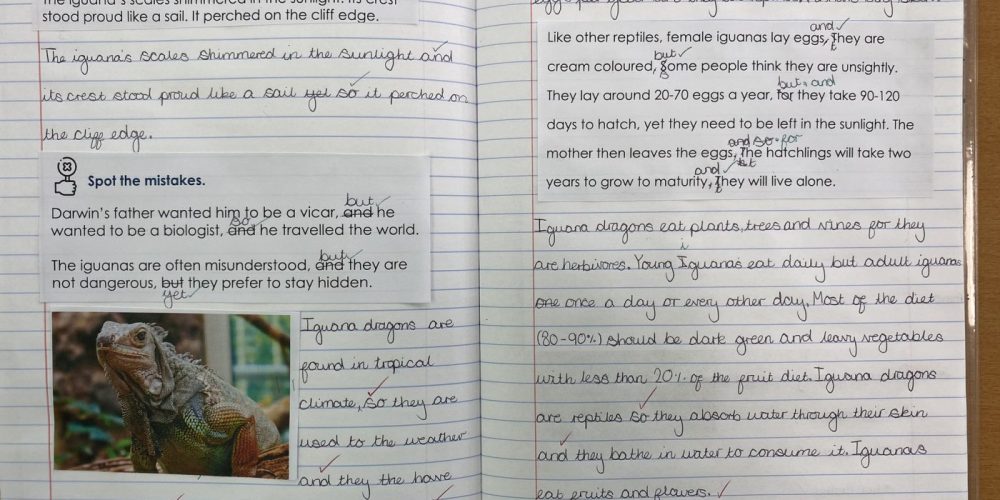 The iguana's scales shimmered in the sunlight. Its crest
stood proud like a sail. It perched on the cliff edge.
The iguana's scales shimmered in the sunlight and
its crest stood proud like a sail yet so it perched on
the cliff edge.
Spot the mistakes.
but
Darwin's father wanted him to be a vicar, and he
so
wanted to be a biologist, and he travelled the world.
but
The iguanas are often misunderstood, and they are
not dangerous, but they prefer to stay hidden.
yet
Iguana dragons are
found in tropical
climate, so they are
used to the weather
and they the have
and
Like other reptiles, female iguanas lay eggs, They are
but
cream coloured, Some people think they are unsightly.
but, and
They lay around 20-70 eggs a year, for they take 90-120
days to hatch, yet they need to be left in the sunlight. The
and so for
mother then leaves the eggs, The hatchlings will take two
and but
years to grow to maturity, They will live alone.
Iguana dragons eat plants, trees and vines for they
i
are herbivores. Young Iguanas eat daily but adult iguanas
one once a day or every other day. Most of the diet
(80-90%) should be dark green and leavy vegetables
with less than 20% of the fruit diet. Iguana dragons
are reptiles so they absorb water through their skin
and they bathe in water to consume it. Iguanas
eat fruits and flowers.